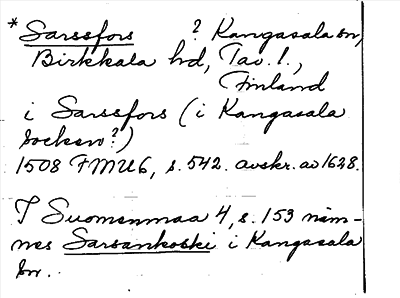 * Sarssfors ? Kangasala sn,
Birkkala hd, Tav. l.,
Finland
i Sarssfors (i Kangasala
socken?)
1508 FMU6, s. 542. avskr. av 1628.
I Suomenmaa 4, s. 153 näm-
nes Sarsankoski i Kangasala
sn.